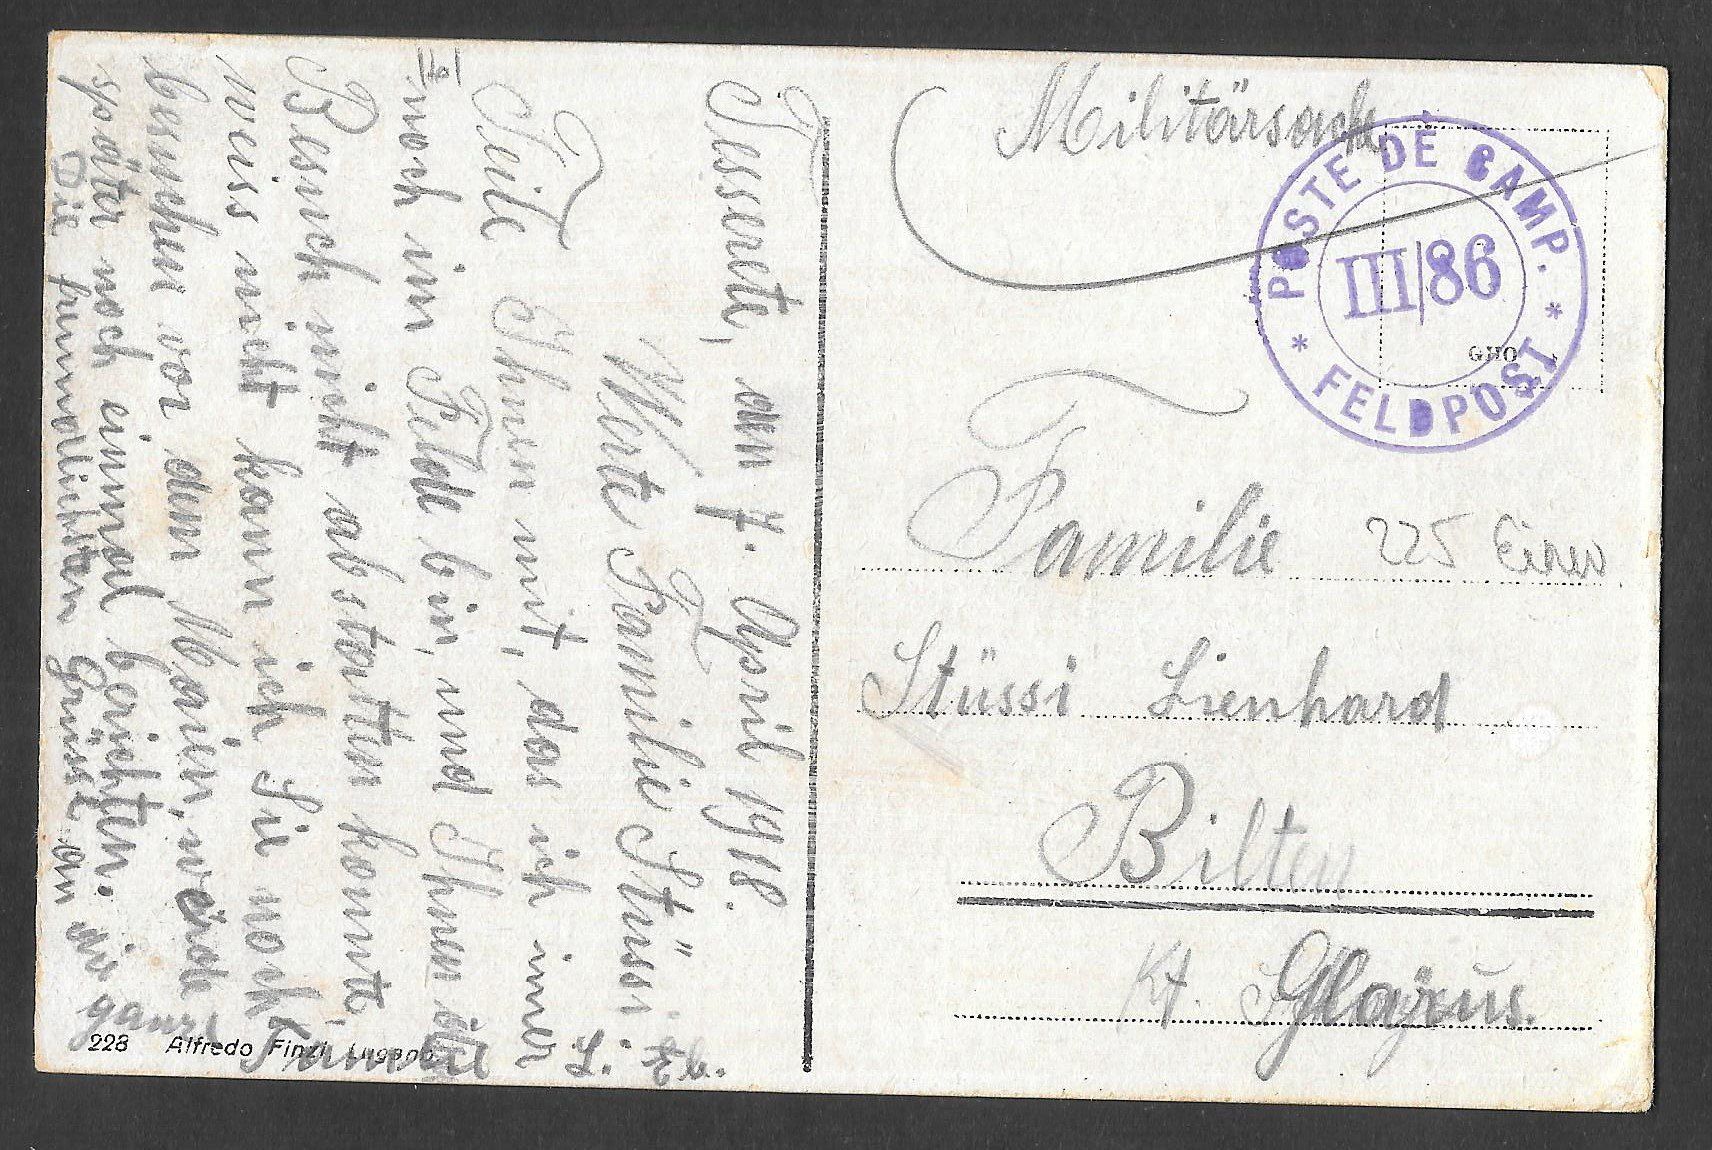 Tesserete, den 7. April 1918.
Werte Familie Stüssi.
Teile Ihnen mit, das ich immer
noch im Felde bin, und Ihnen den
Besuch nicht abstatten konnte,
weis nicht kann ich Sie noch
besuchen vor dem Maien, werde
später noch einmal berichten.
Die freundlichsten Grüsse an die ganze
Familie
228 Alfredo Finzi, Lugano
Militärsache
POSTE DE CAMP.
III/86
* FELDPOST *
Familie
225 Einw
Stüssi Lienhard
Bilten
Kt. Glarus.